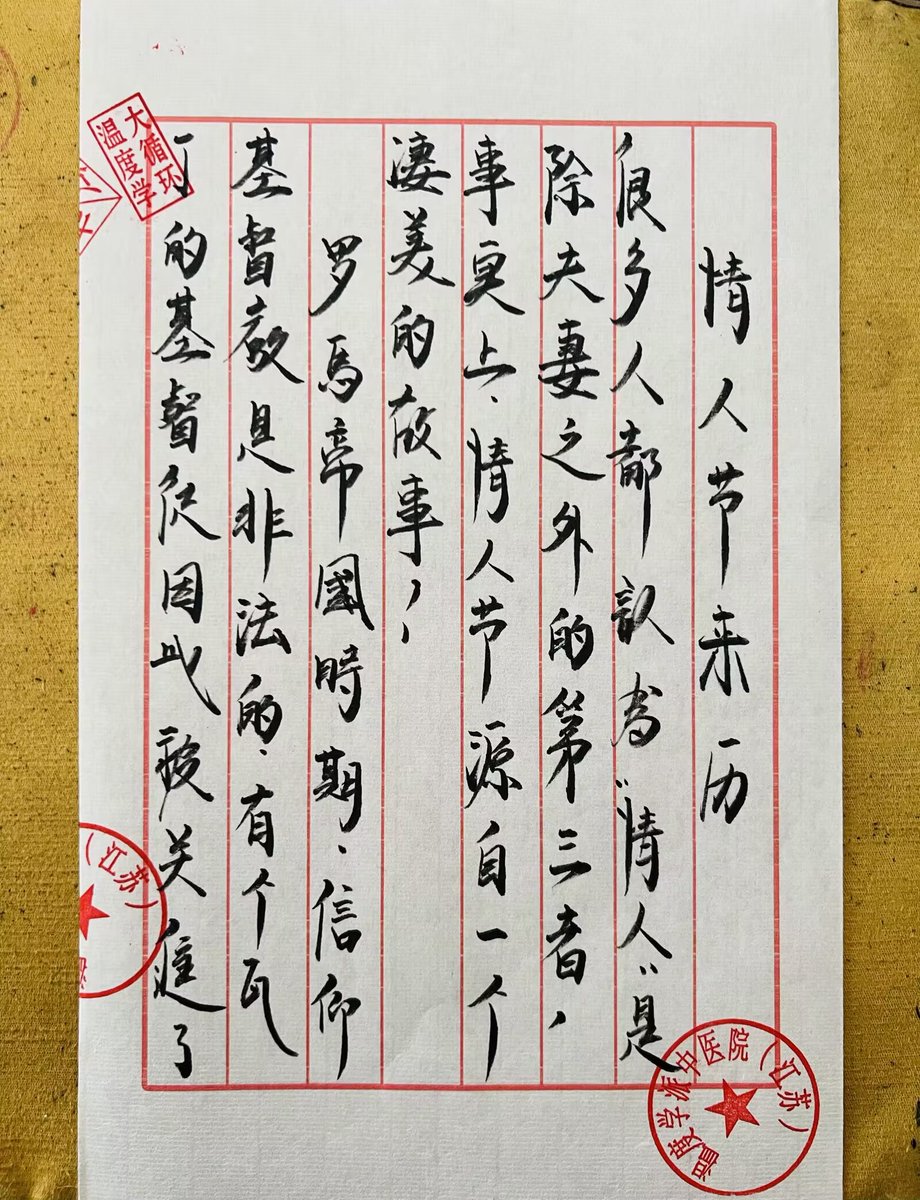 情人节来历
很多人都認为“情人”是
除夫妻之外的第三者，
事实上、情人节源自一个
凄美的故事，，
罗馬帝國時期、信仰
基督教是非法的、有个瓦
丁的基督徒因此被关進了
大循环
温度学
（江苏）
温度学派中医院（江苏）